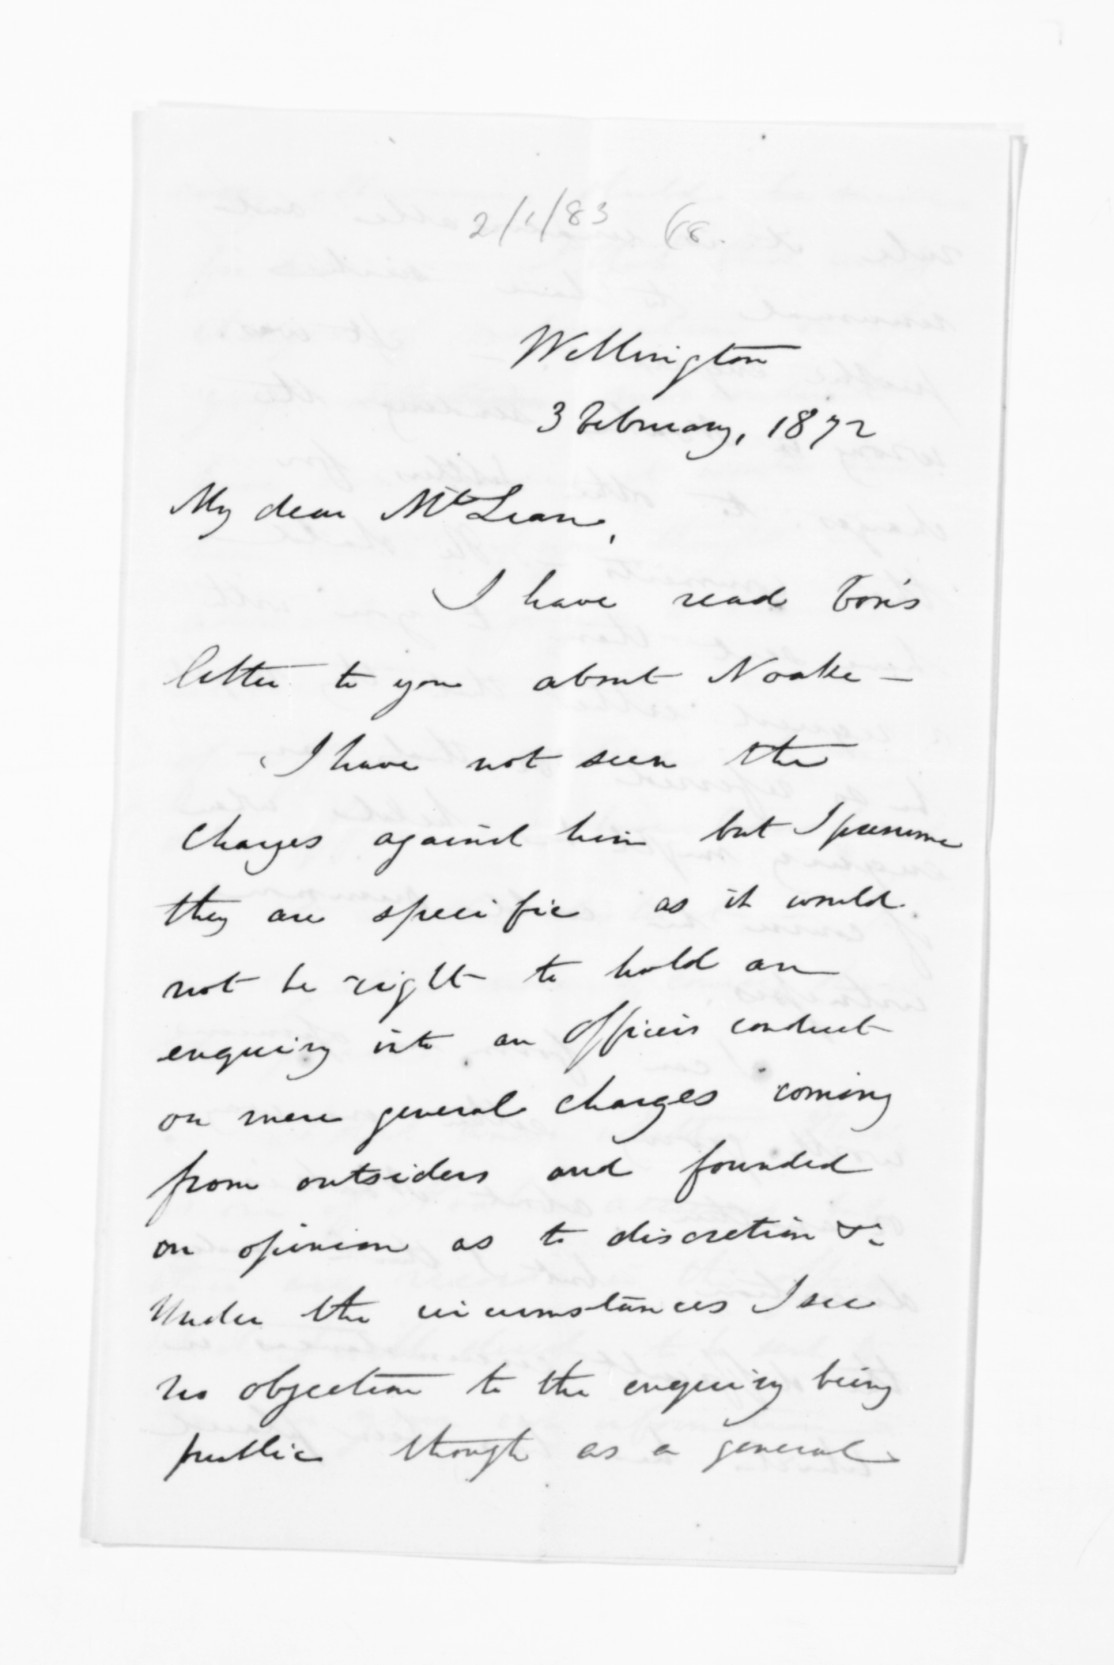 2/1/83 (8.
Wellington
3 February, 1872
My dear McLean,
I have read Fox's
letter to you about Noake —
I have not seen the
charges against him but I presume
they are specific as it would
not be right to hold an
enquiry into an Officers conduct
on mere general charges coming
from outsiders and founded
on opinion as to discretion &c
Under the circumstances I see
no objection to the enquiry being
public though as a general